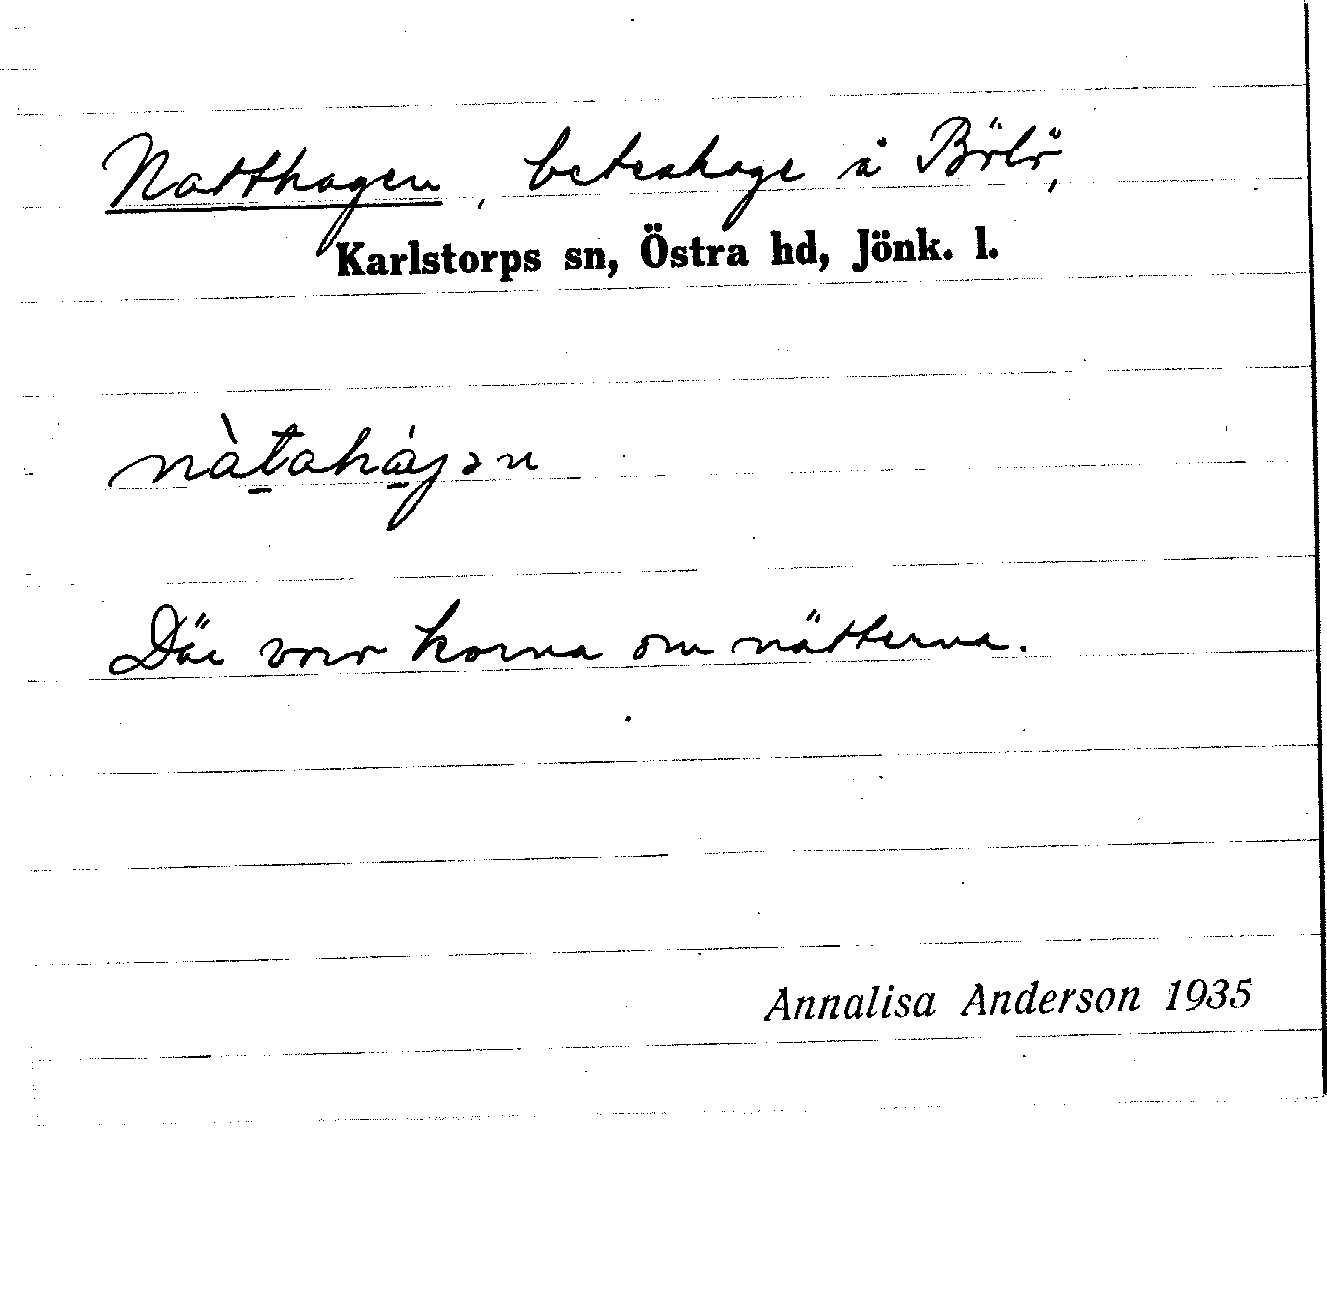 Natthagen, beteshage å Börlö,
Karlstorps sn, Östra hd, Jönk. l.
nàt̠ahá̠gən
Där voro korna om nätterna.
Annalisa Anderson 1935